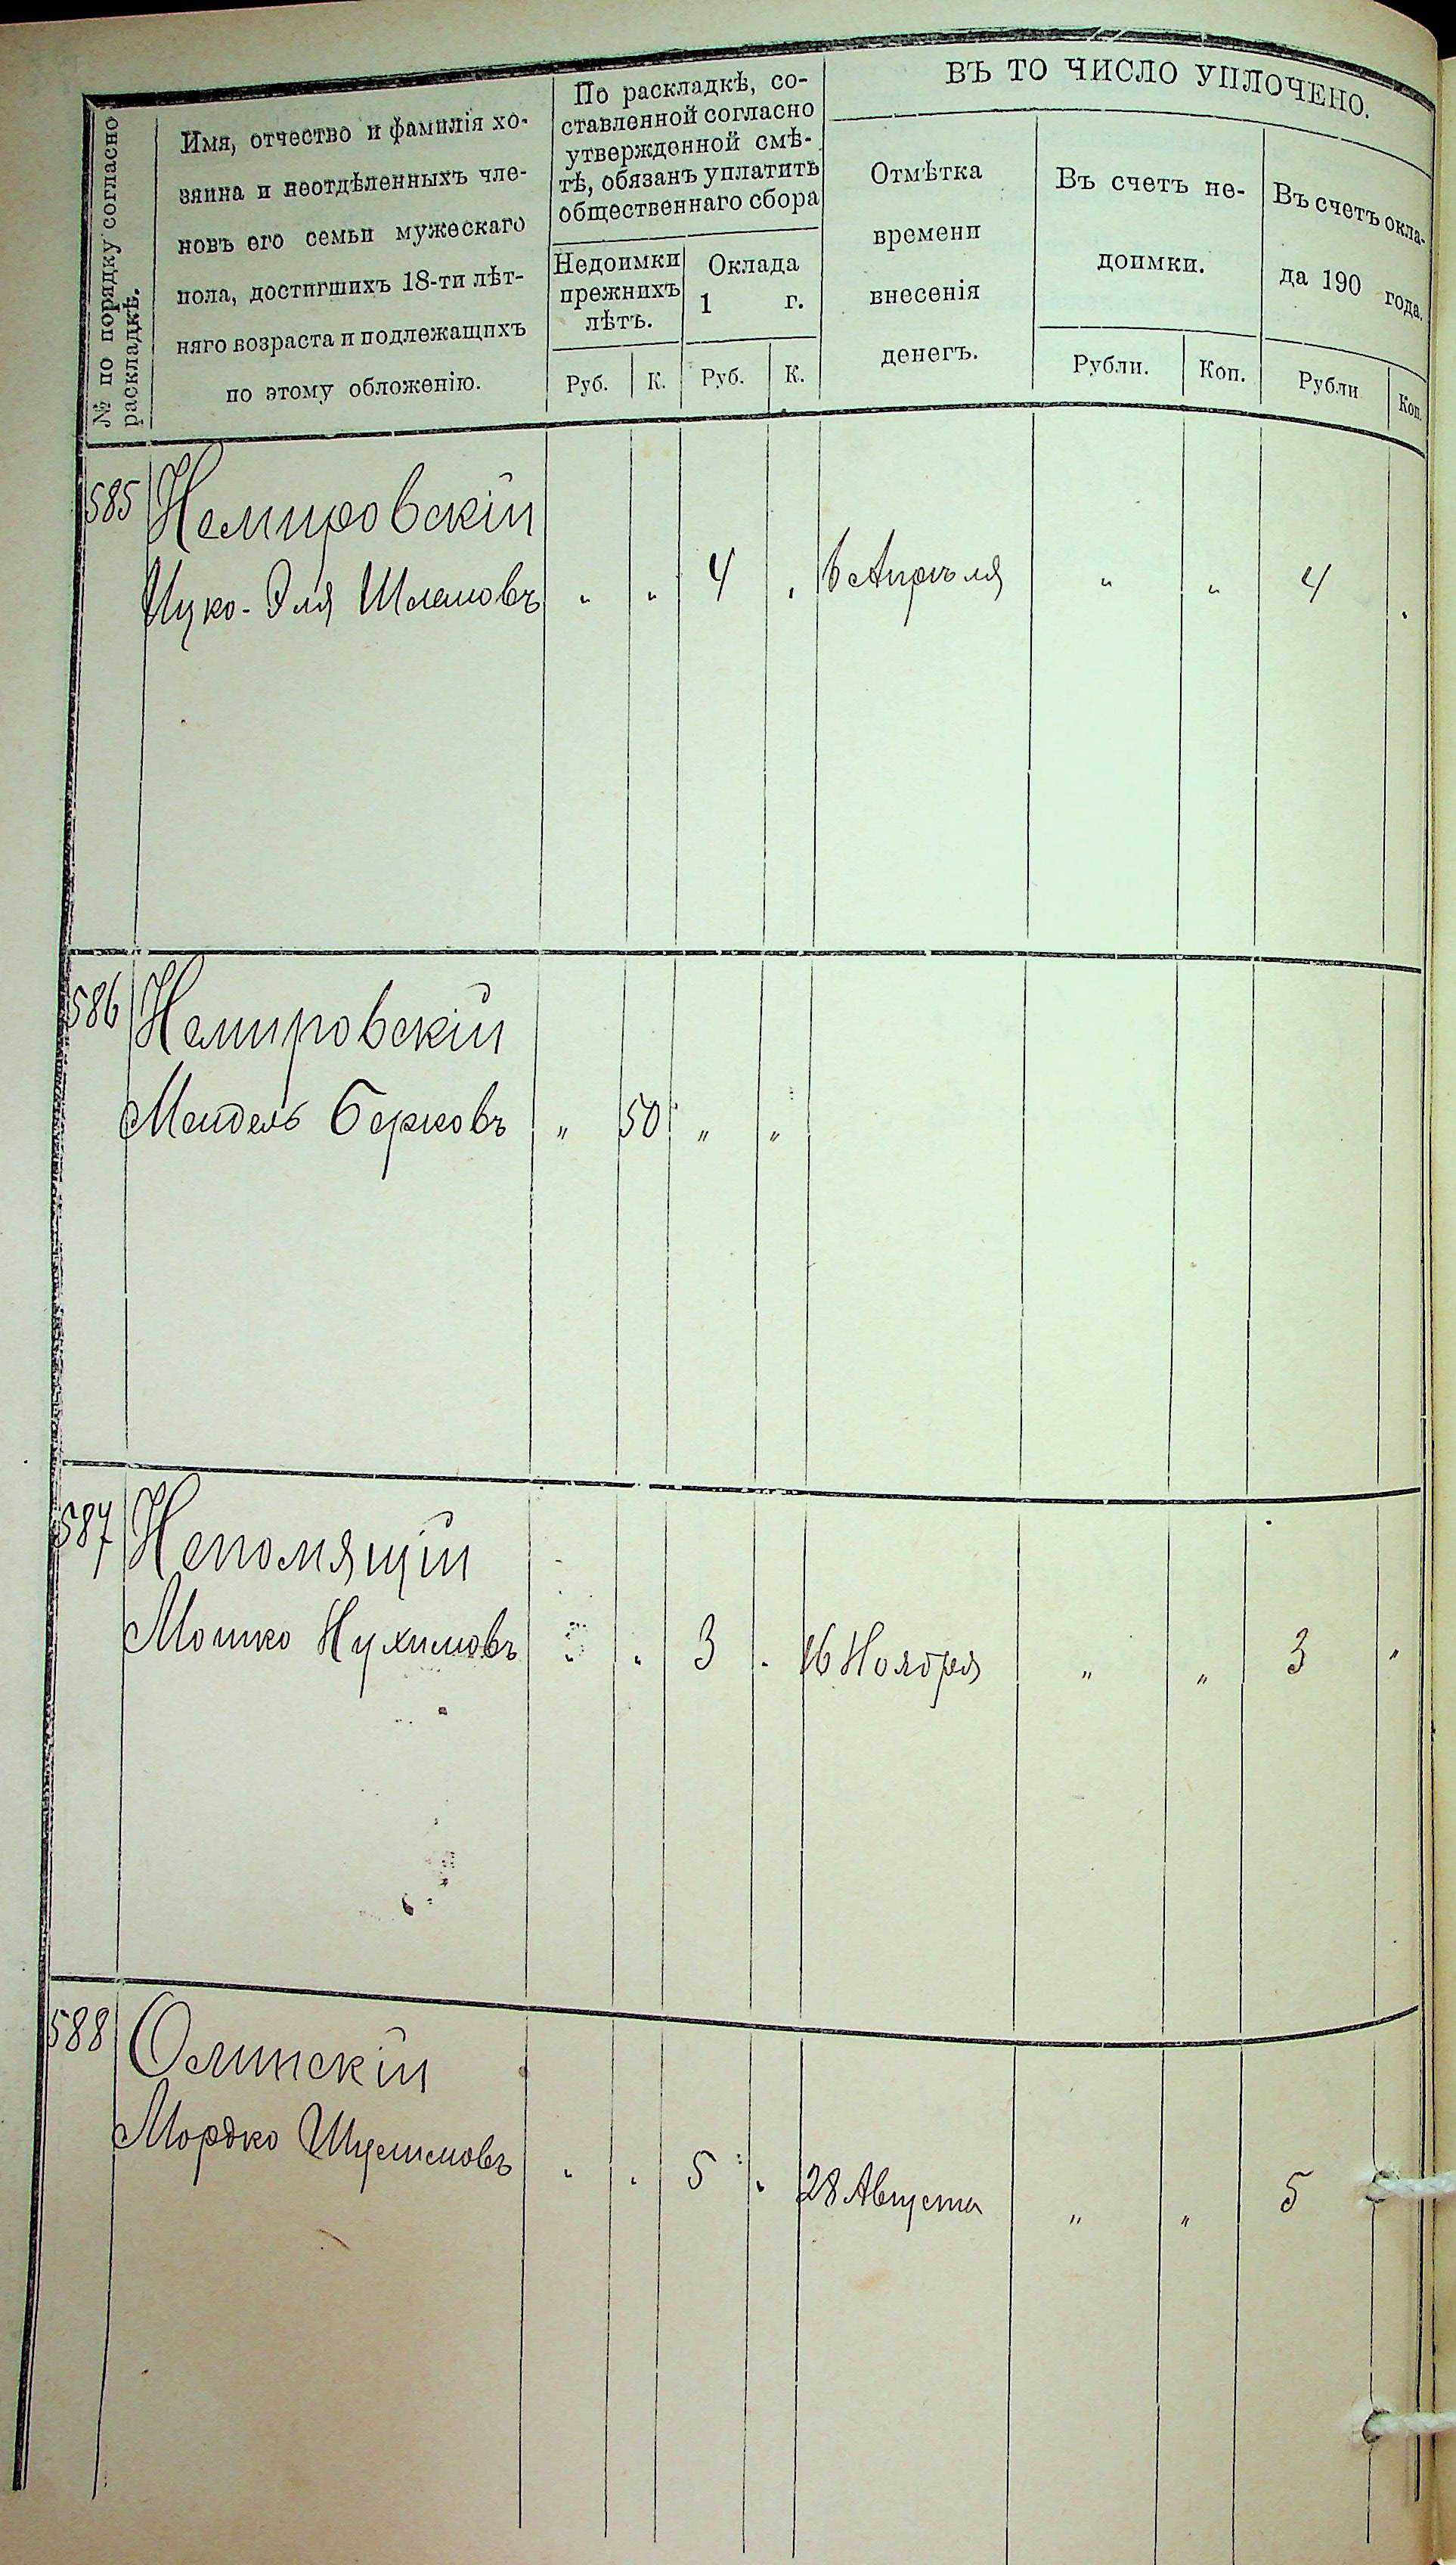 № по порядку согласно раскладкѣ.
Имя, отчество и фамилія хо-
зяина и неотдѣленныхъ чле-
новъ его семьи мужескаго
пола, достигшихъ 18-ти лѣт-
няго возраста и подлежащихъ
по этому обложенію.
По раскладкѣ, со-
ставленной согласно
утвержденной смѣ-
тѣ, обязанъ уплатить
общественнаго сбора
Недоимки
прежнихъ
лѣтъ.
Оклада
1 г.
Руб. К. Руб. К.
ВЪ ТО ЧИСЛО УПЛОЧЕНО.
Отмѣтка
времени
внесенія
денегъ.
Въ счетъ не-
доимки.
Рубли. Коп.
Въ счетъ окла-
да 190 года.
Рубли Коп.
585 Немировскій
Ицко-Эля Шлемовъ „ „ 4 „ 6 Апрѣля „ „ 4 „
586 Немировскій
Мендель Берковъ „ 50 „ „
587 Непомящій
Мошко Нухимовъ „ „ 3 „ 16 Ноября „ „ 3 „
588
Мордко „ „ 5 „ 28 Августа „ „ 5